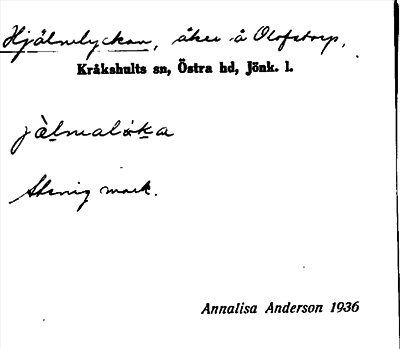 Hjälmlyckan, åker å Olofstorp,
Kråkshults sn, Östra hd, Jönk. l.
jàlmalóka
Stenig mark.
Annalisa Anderson 1936